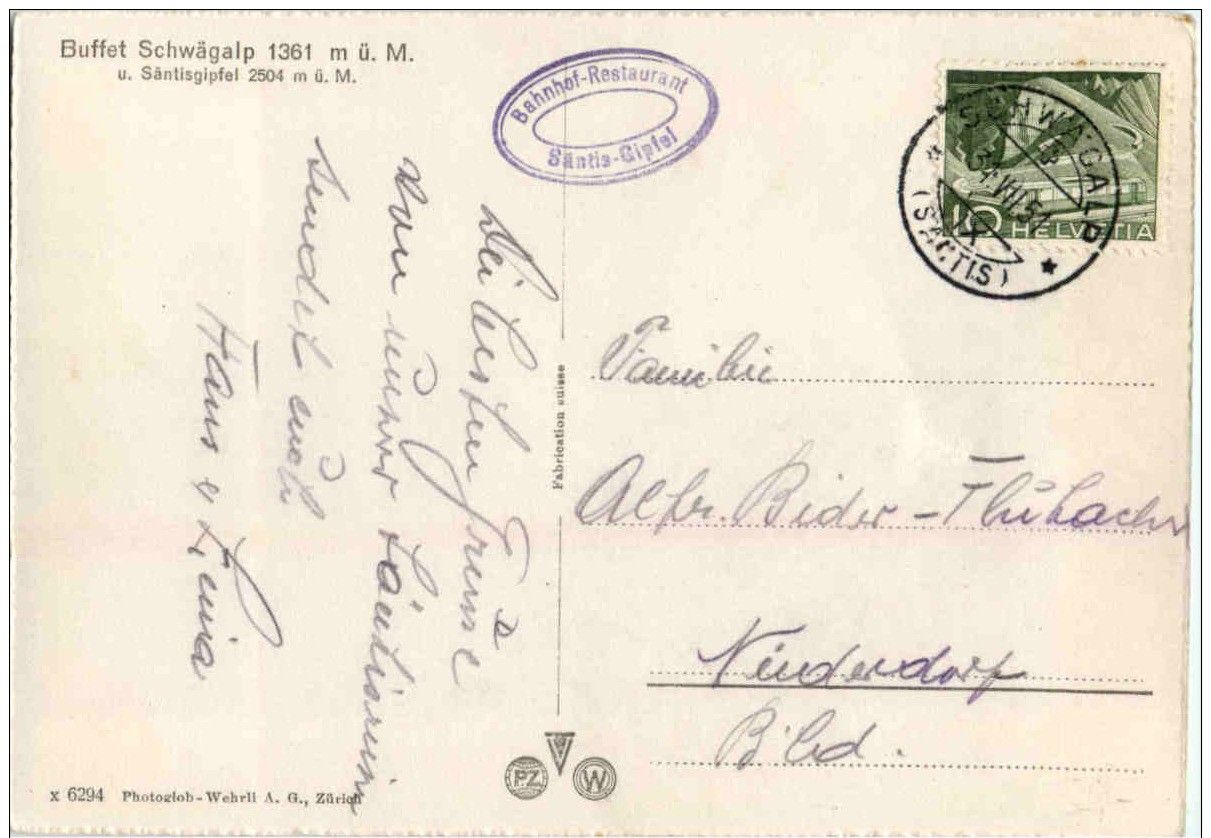 Buffet Schwägalp 1361 m ü. M.
u. Säntisgipfel 2504 m ü. M.
Bahnhof-Restaurant
Säntis-Gipfel
SCHWÄGALP
31.VII.51
(SÄNTIS)
10 HELVETIA
Die besten Grüsse
von
sendet euch
Hans &
Fabrication suisse
Familie
Alfr. Bider-Thübacher
Niederdorf
B'ld.
PZ
W
x 6294 Photoglob-Wehrli A. G., Zürich